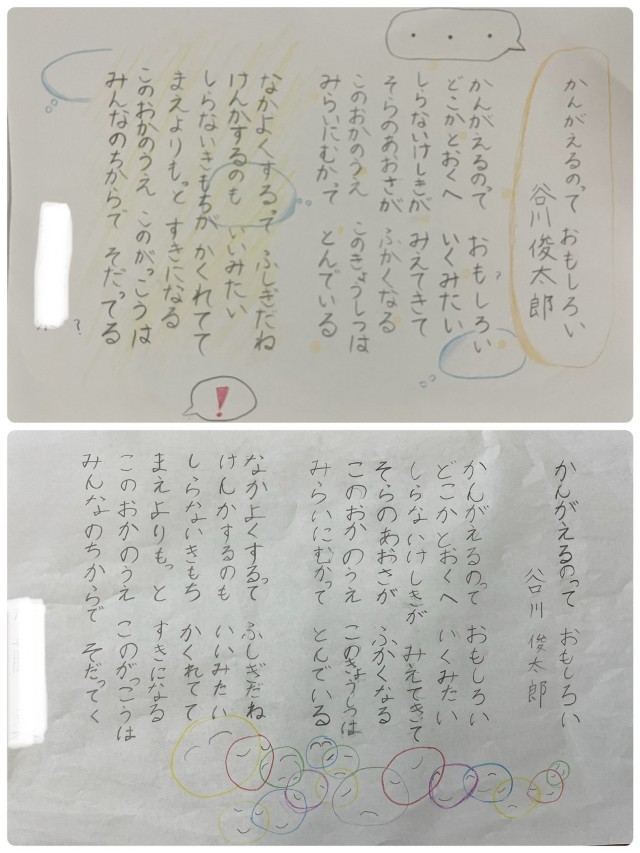 かんがえるのって おもしろい
谷川俊太郎
かんがえるのって おもしろい
どこかとおくへ いくみたい
しらないけしきが みえてきて
そらのあおさが ふかくなる
このおかのうえ このきょうしつは
みらいにむかって とんでいる
なかよくするって ふしぎだね
けんかするのも いいみたい
しらないきもちが かくれてて
まえよりもっと すきになる
このおかのうえ このがっこうは
みんなのちからで そだってる
・・・
?
!
?
かんがえるのって おもしろい
谷川 俊太郎
かんがえるのって おもしろい
どこかとおくへ いくみたい
しらないけしきが みえてきて
そらのあおさが ふかくなる
このおかのうえ このきょうしつは
みらいにむかって とんでいる
なかよくするって ふしぎだね
けんかするのも いいみたい
しらないきもち かくれてて
まえよりもっと すきになる
このおかのうえ このがっこうは
みんなのちからで そだってく